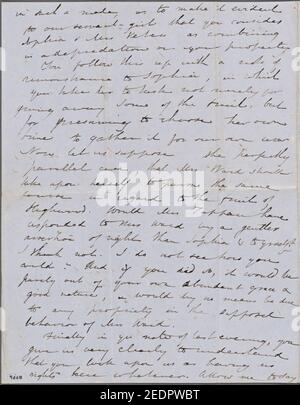 in such a mode, as to make it evident
to our servant-girl that you consider
Sophia & Mrs. Peters as combining
in depredations on your property
You follow this up with a note of
remonstrance to Sophia, in which
you take her to task not merely for
giving away some of the fruit, but
for presuming to choose her own
time to gather it for our own use
Now let us suppose the perfectly
parallel case, that Mrs. Ward should
take upon herself to pursue the same
course in regard to the fruit of
Highwood. Would Mrs. Tappan have
responded to Mrs. Ward by a gentler
assertion of rights than Sophia's to yourself
I think not. I do not see how you
could. And, if you did so, it would be
purely out of your own abundant grace &
good nature, & would by no means be due
to any propriety in the supposed
behavior of Mrs. Ward.
Finally in yr note of last evening, you
give us very clearly to understand
that you look upon us as having no
rights here whatever. Allow me to say
alamy
Image ID: 2EDPWBT
www.alamy.com